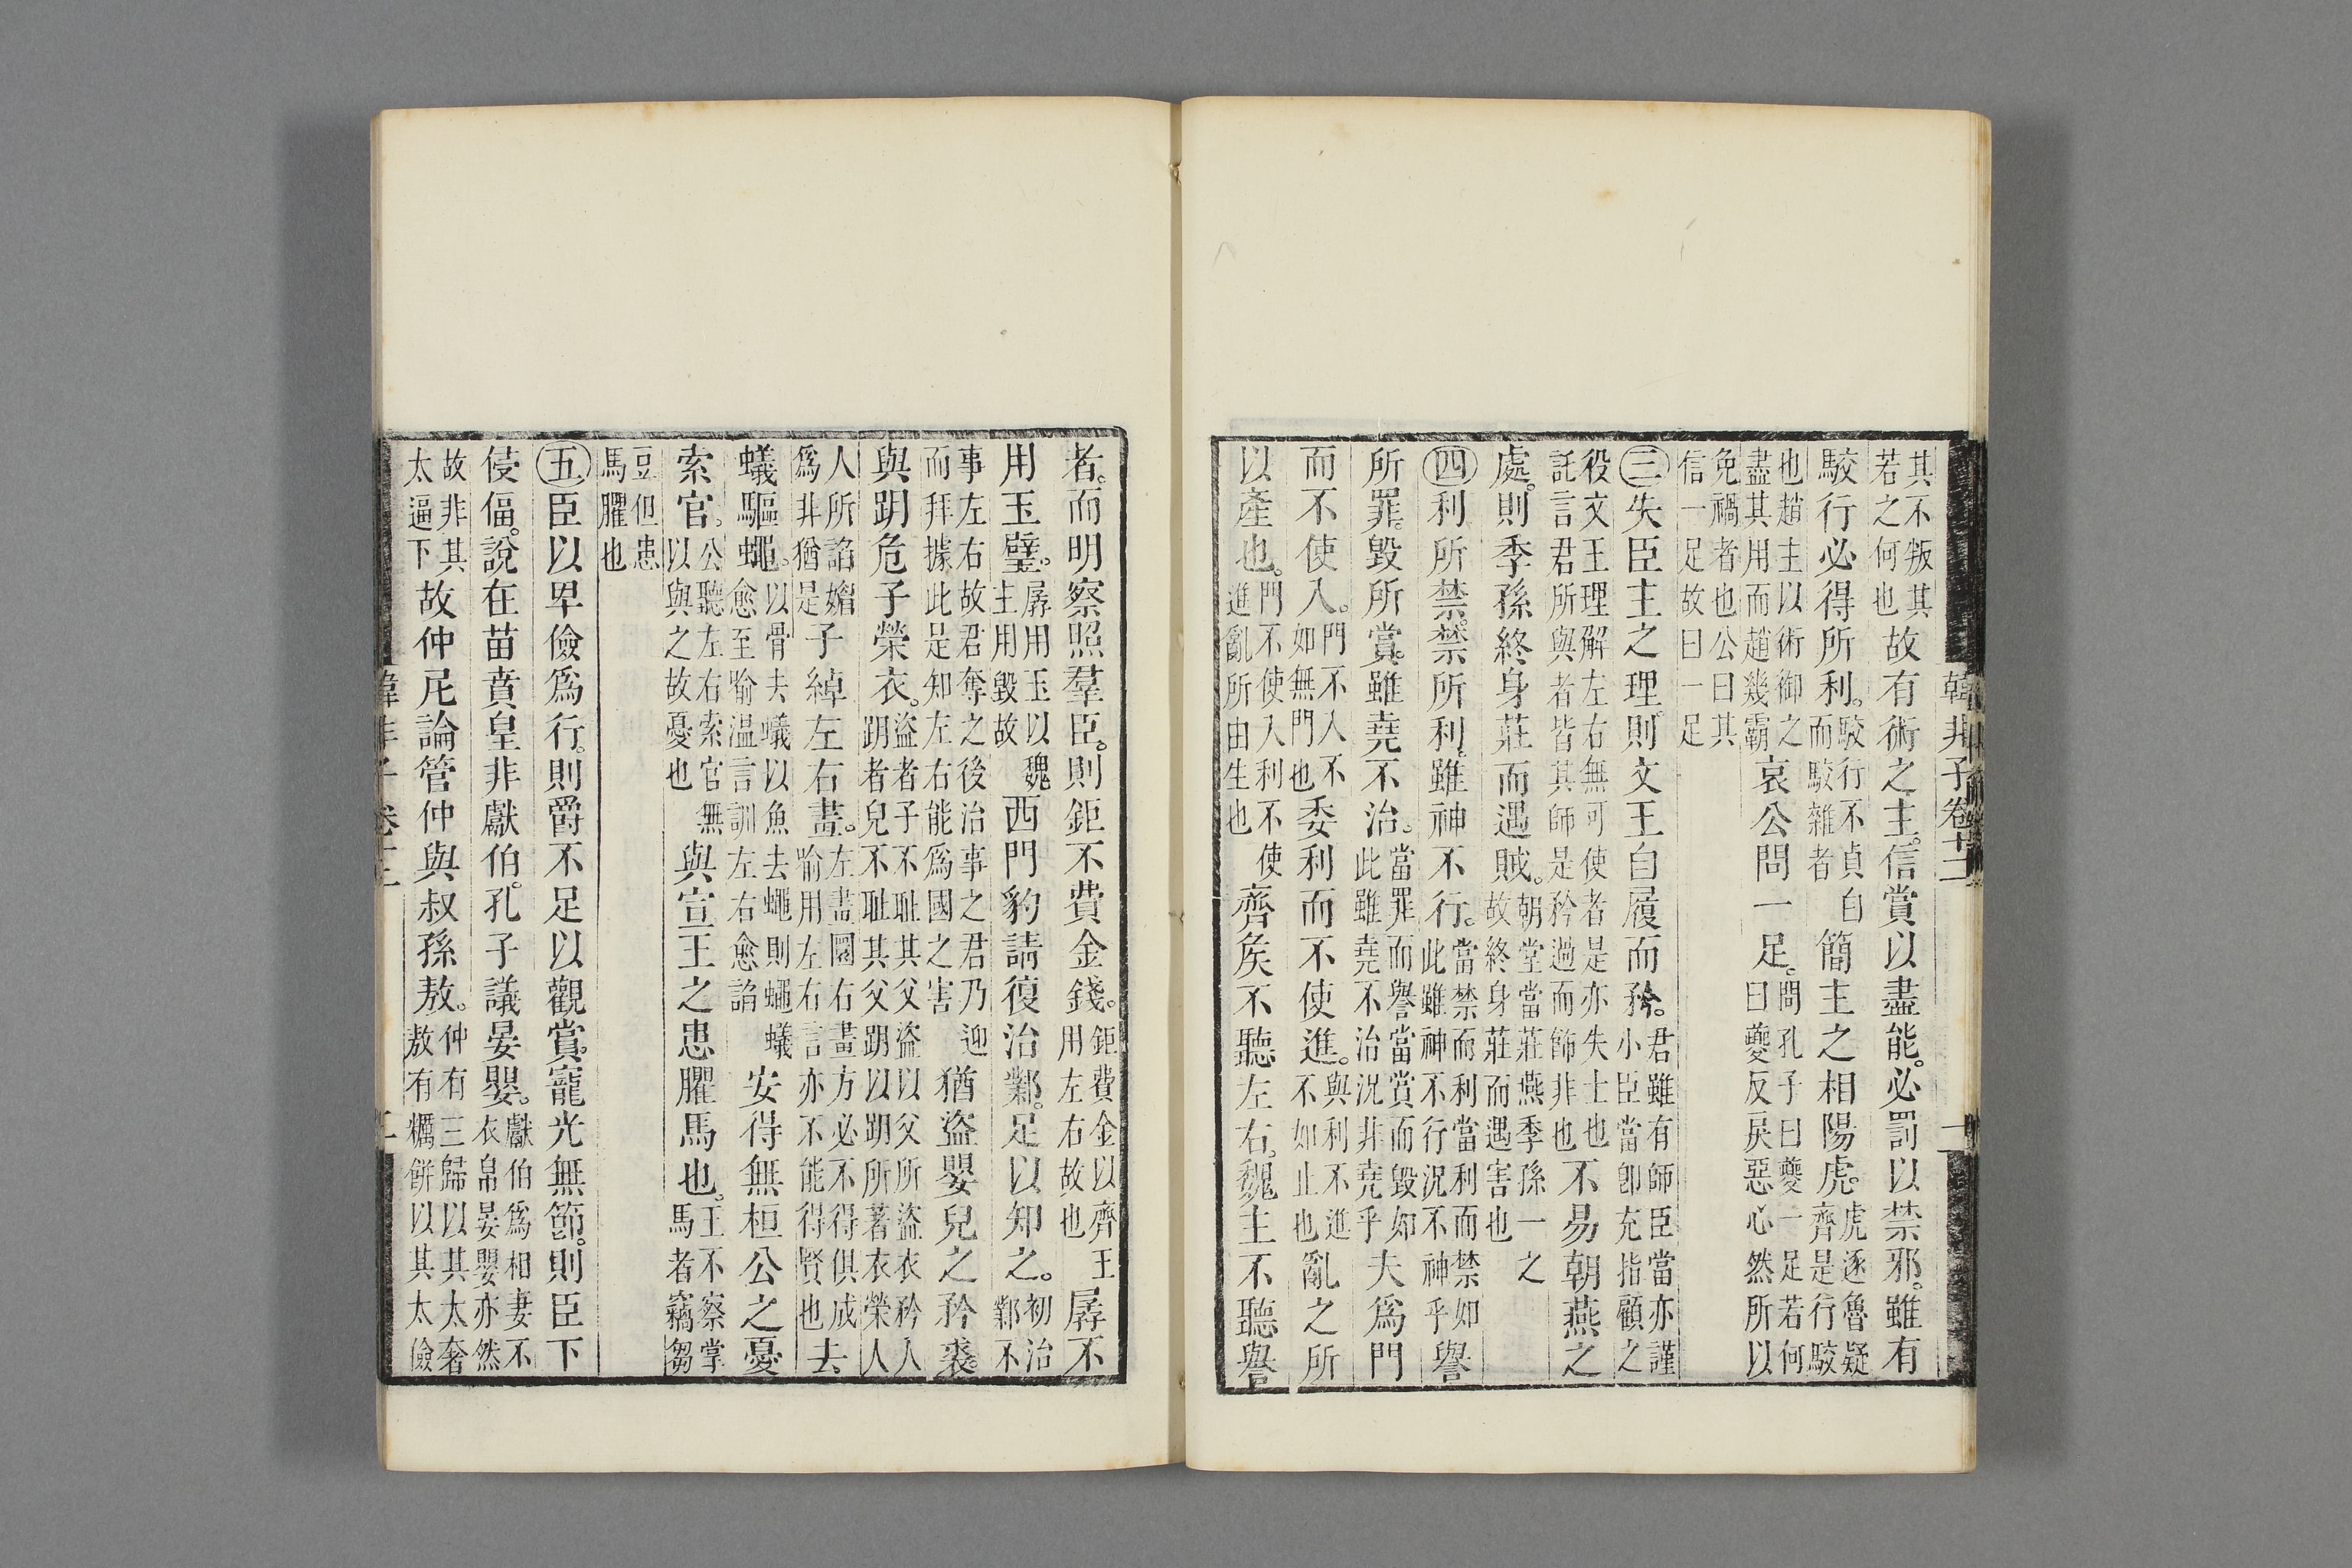 韓非子卷十二
其不叛其若之何也故有術之主。信賞以盡能。必罰以禁邪。雖有
駮行必得所利。駮行不貞白而駮雜者簡主之相陽虎。虎逐魯疑齊是行駮
也趙主以術御之盡其用而趙幾霸哀公問一足。問孔子曰夔一足若何曰夔反戾惡心然所以
免禍者也公曰其信一足故曰一足
三失臣主之理。則文王自履而矜。君雖有師臣當亦謹小臣當卽充指顧之
役文王理解左右無可使者是亦失士也託言君所與者皆其師是矜過而飾非也不易朝燕之
處。則季孫終身莊而遇賊。朝堂當莊燕季孫一之故終身莊而遇害也
四利所禁。禁所利。雖神不行。當禁而利當利而禁如此雖神不行況不神乎譽
所罪。毀所賞。雖堯不治。當罪而譽當賞而毀如此雖堯不治況非堯乎夫爲門
而不使入。門不入不如無門也委利而不使進。與利不進不如止也亂之所
以產也。門不使入利不使進亂所由生也齊矦不聽左右。魏主不聽譽
者。而明察照羣臣。則鉅不費金錢。鉅費金以齊王用左右故也孱不
用玉璧。孱用玉以魏主用毀故西門豹請復治鄴。足以知之。初治鄴不
事左右故君奪之後治事之君乃迎而拜據此是知左右能爲國之害猶盜嬰兒之矜裘。
與跀危子榮衣。盜者子不耻其父盜以父所盜衣矜人跀者兒不耻其父跀以跀所著衣榮人
人所諂媚爲非猶是子綽左右畫。左畫圜右畫方必不得俱成喻用左右言亦不能得賢也去
蟻驅蠅。以骨去蟻以魚去蠅則蠅蟻愈至喻温言訓左右愈諂安得無桓公之憂
索官。公聽左右索官無以與之故憂也與宣王之患臞馬也。王不察掌馬者竊芻
豆但患馬臞也
五臣以卑儉爲行。則爵不足以觀賞。寵光無節。則臣下
侵偪。說在苗賁皇非獻伯。孔子議晏嬰。獻伯爲相妻不衣帛晏嬰亦然
故非其太逼下故仲尼論管仲與叔孫敖。仲有三歸以其太奢敖有糲餠以其太儉